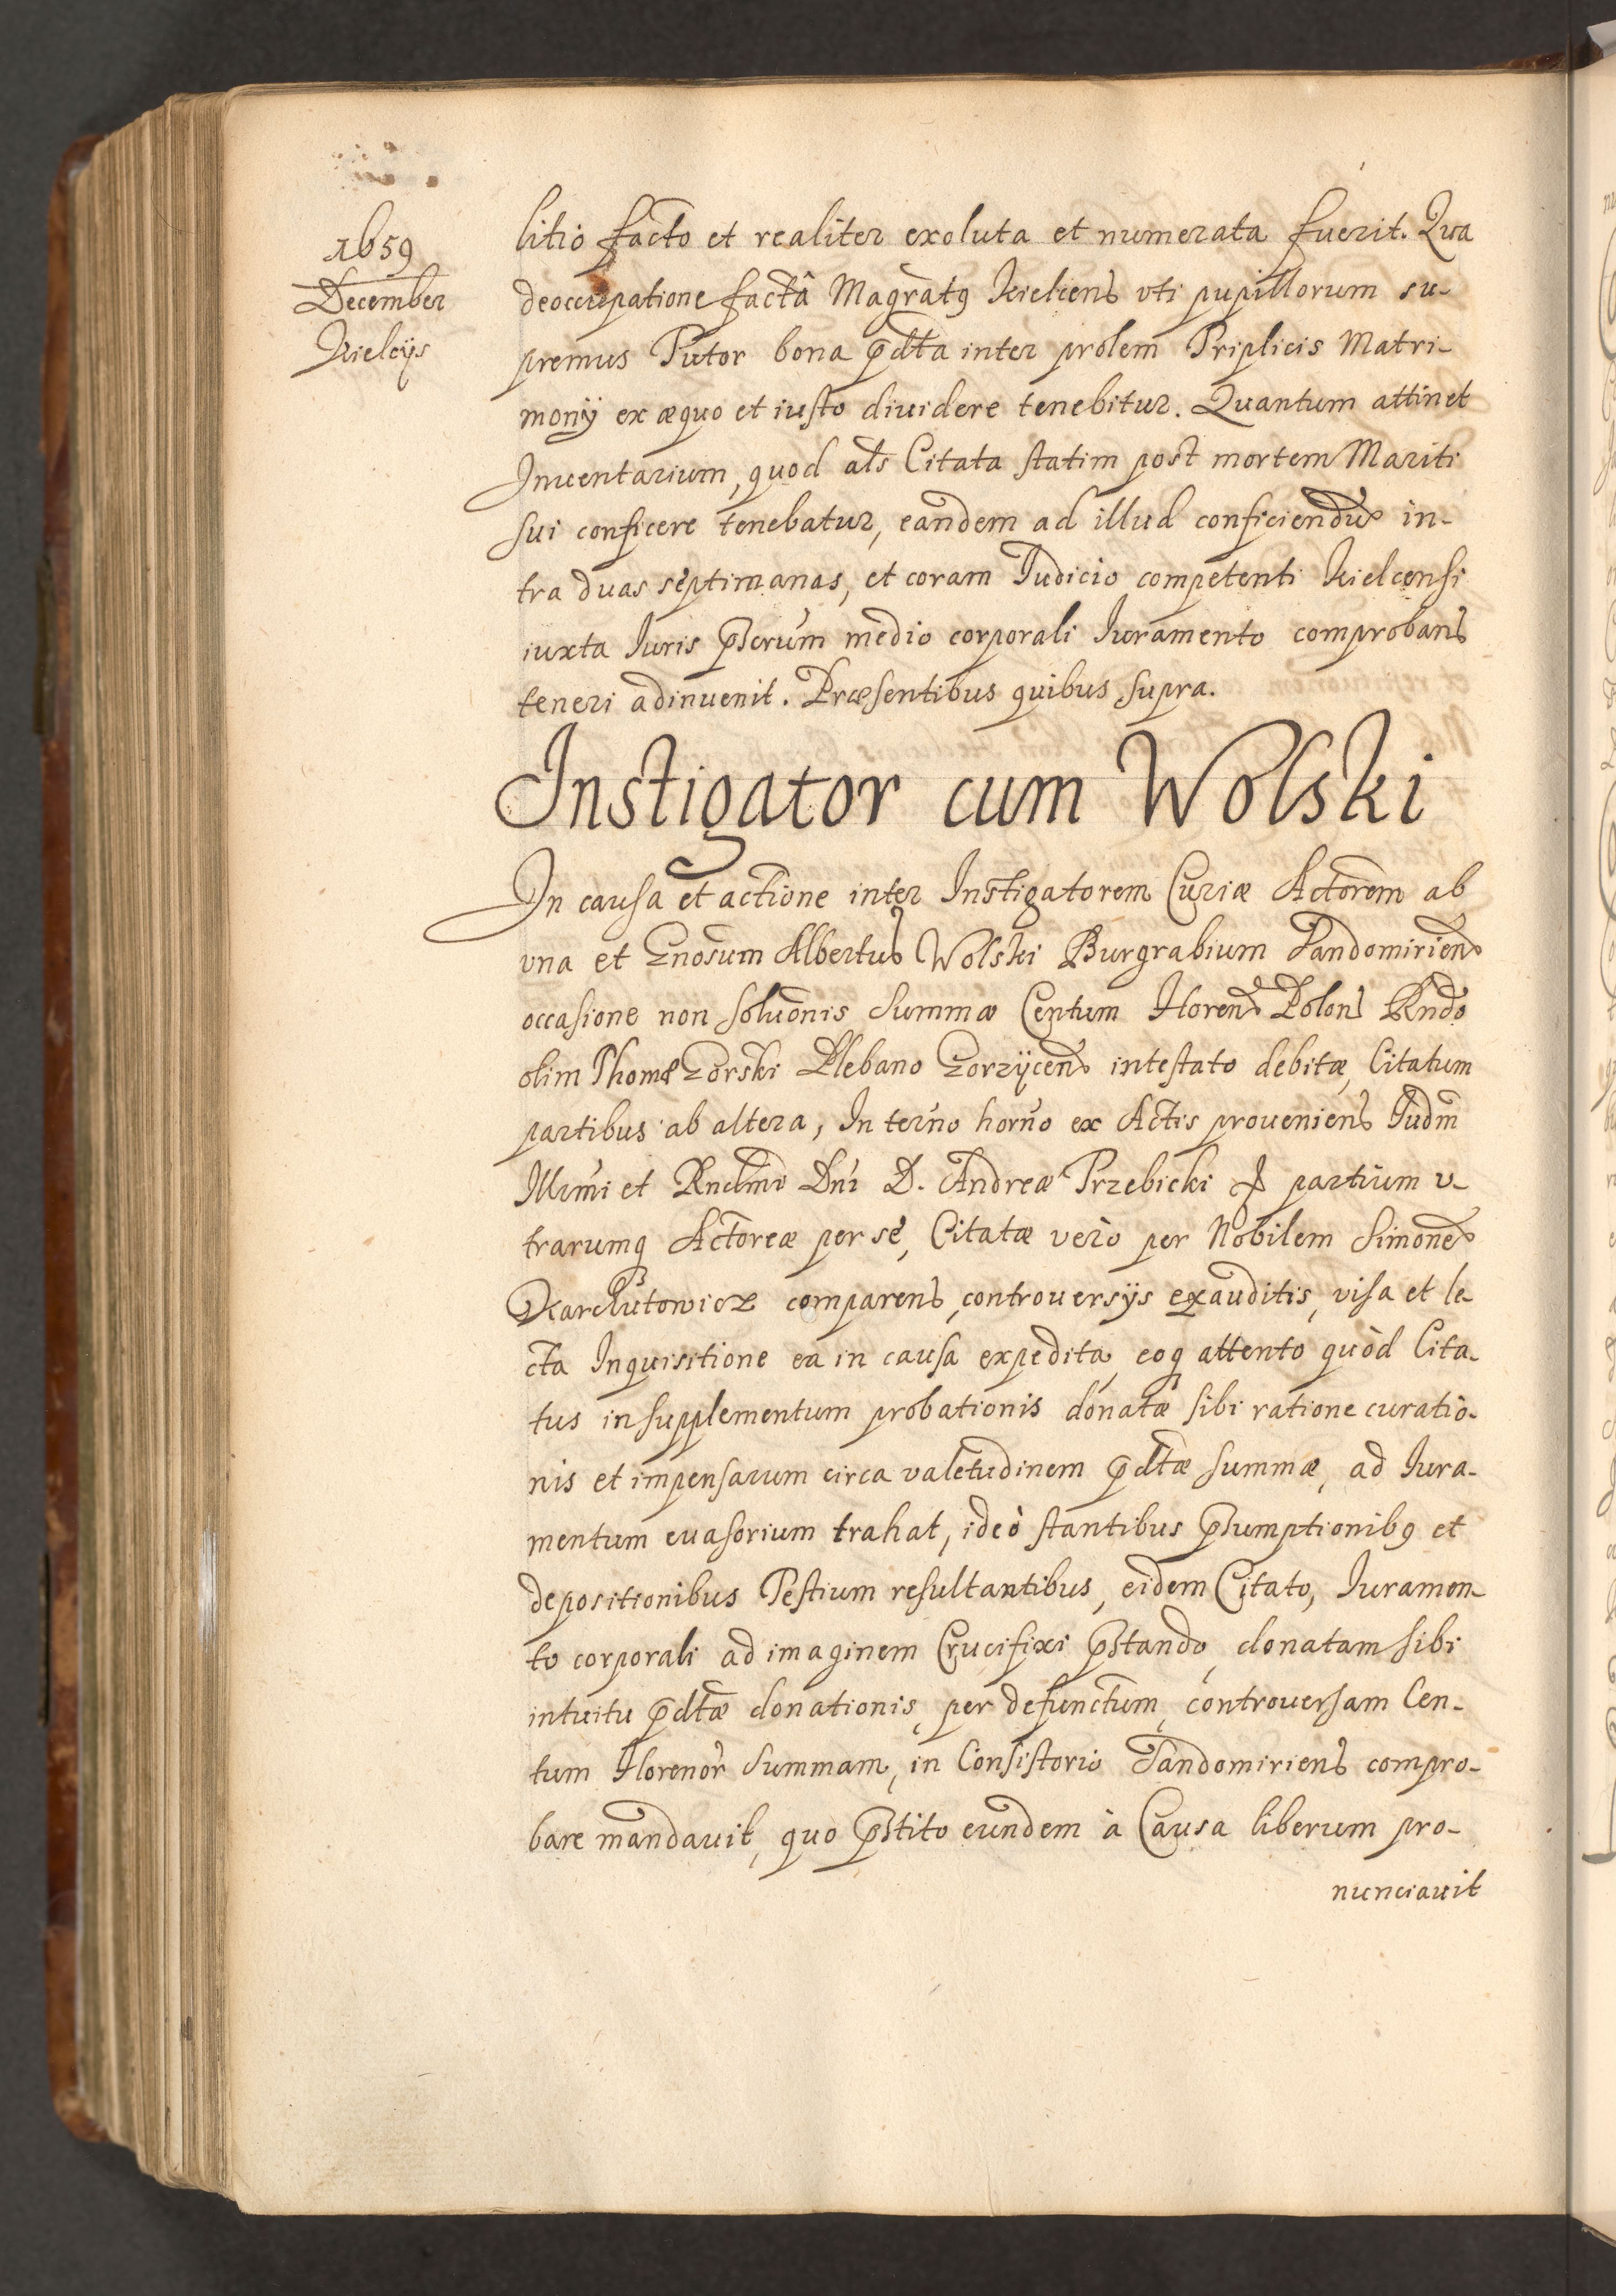 1659
December
Kielcijs
litio facto et realiter exoluta et numerata fuerit. Qua
deoccupatione factâ Magratq Kielcens vti pupillorum su-
premus Tutor bona p̄dta inter prolem Triplicis Matri-
monij ex æquo et iusto diuidere tenebitur. Quantum attinet
Inuentarium, quod als Citata statim post mortem Mariti
sui conficere tenebatur, eandem ad illud conficiendū in-
tra duas septimanas, et coram Iudicio competenti Kielcensi
iuxta Iuris p̄scrum medio corporali Iuramento comprobans
teneri adinuenit. Præsentibus quibus supra.
Instigator cum Wolski
In causa et actione inter Instigatorem Curiæ Actorem ab
vna et Gnosum Albertus Wolski Burgrabium Sandomirien
occasione non soluonis Summæ Centum Floren Polon Rndo
olim Thomæ Gorski Plebano Gorzycen intestato debitæ, Citatum
partibus ab altera, In terno horno ex Actis proueniens Iudm
Illmi et Rndmi Dni D. Andreæ Trzebicki & partium v-
trarumq Actoreæ per se, Citatæ verò per Nobilem Simonē
Karchutowicz comparens, controuersijs exauditis, visa et le-
cta Inquisitione ea in causa expedita, eoq attento quòd Cita-
tus in supplementum probationis donatæ sibi ratione curatio-
nis et impensarum circa valetudinem p̄dtæ summæ, ad Iura-
mentum euasorium trahat, ideò stantibus p̄sumptionibq et
depositionibus Testium resultantibus, eidem Citato, Iuramen-
to corporali ad imaginem Crucifixi p̄stando, donatam sibi
intuitu p̄dtæ donationis, per defunctum, controuersam Cen-
tum Florenor Summam, in Consistorio Sandomiriens compro-
bare mandauit, quo p̄stito eundem à Causa liberum pro-
nunciauit